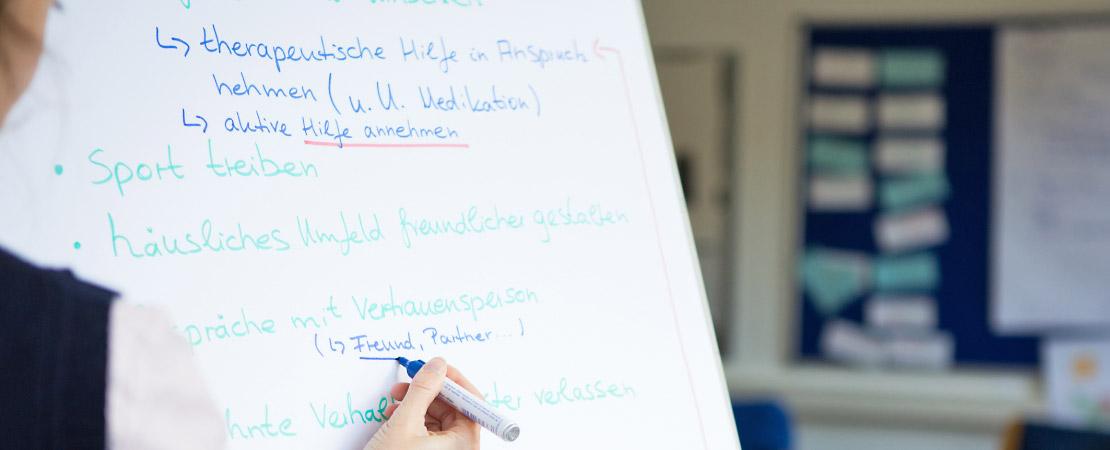 ↳ therapeutische Hilfe in Anspruch
nehmen (u. U. Medikation)
↳ aktive Hilfe annehmen
• Sport treiben
• häusliches Umfeld freundlicher gestalten
präche mit Vertrauensperson
(↳ Freund, Partner...)
hnte Verhal ter verlassen